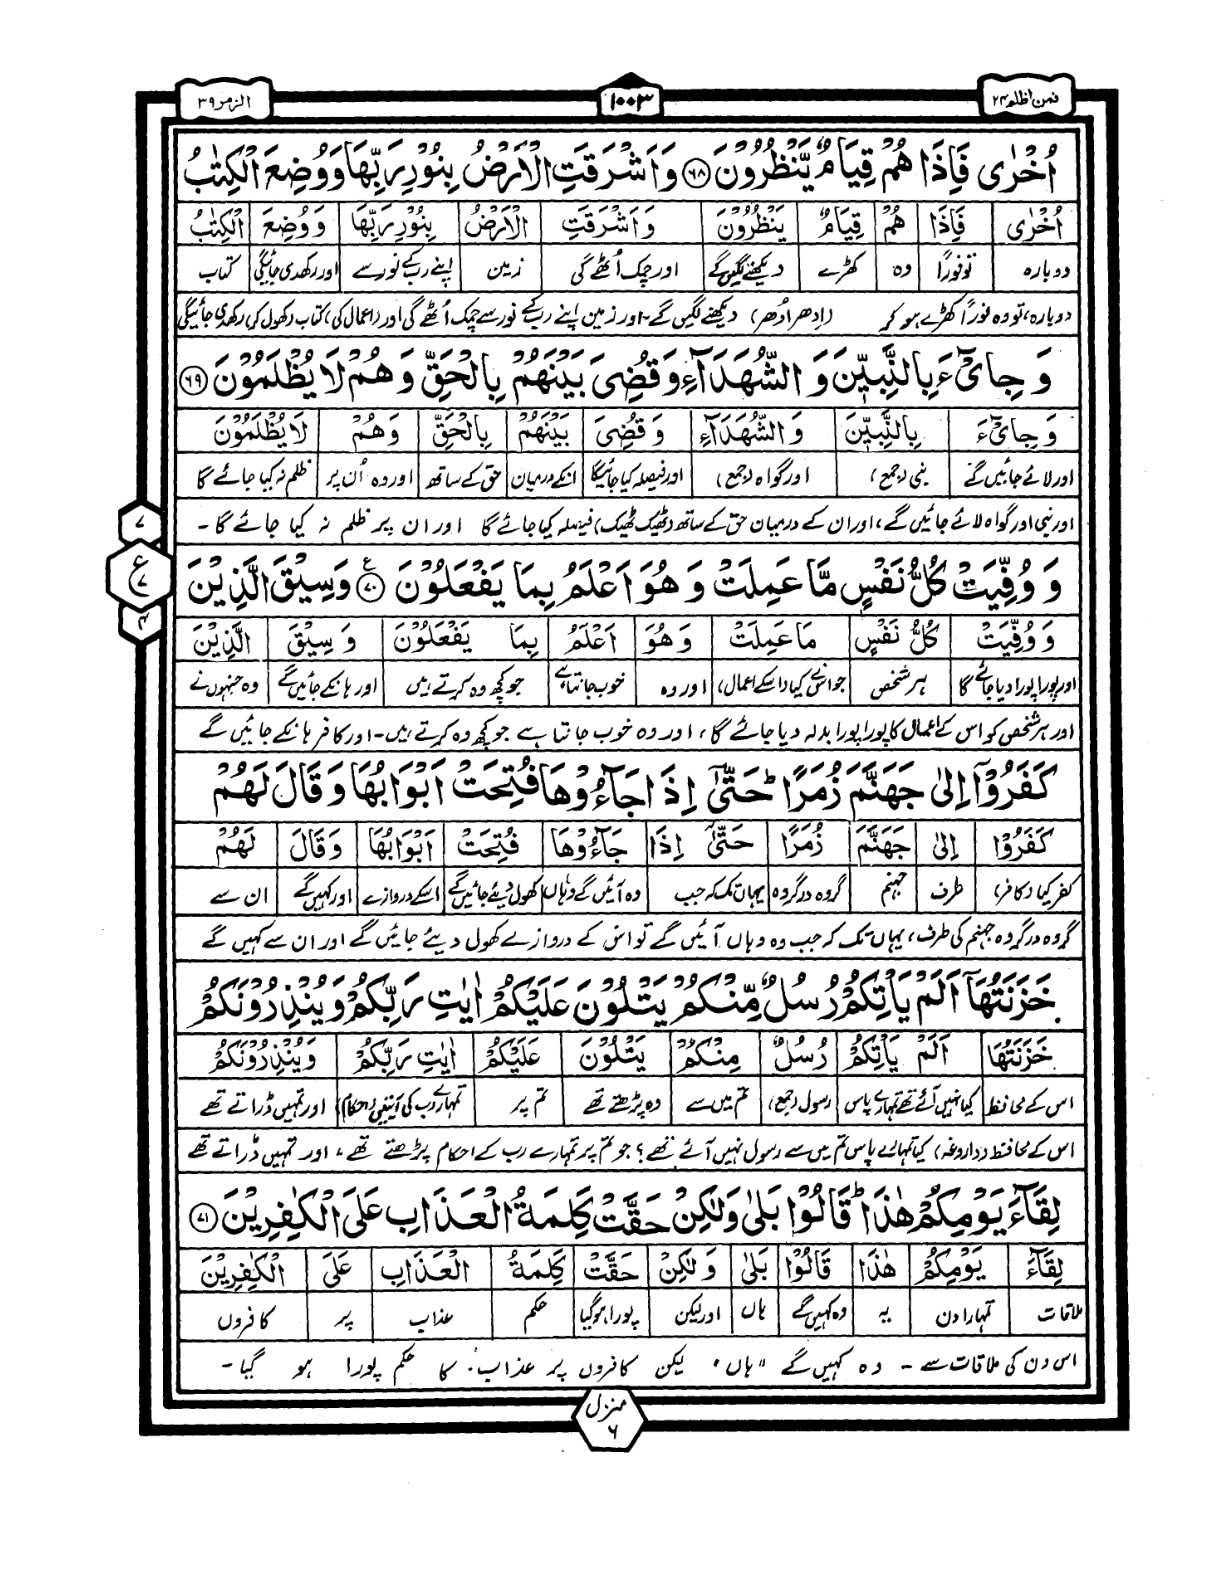 الزمر ۳۹
۱۰۰۳
فمن اظلم ۲۴
اُخْرٰى فَاِذَا هُمْ قِيَامٌ يَّنْظُرُوْنَ ﴿۶۸﴾ وَاَشْرَقَتِ الْاَرْضُ بِنُوْرِ رَبِّهَا وَوُضِعَ الْكِتٰبُ
اُخْرٰى فَاِذَا هُمْ قِيَامٌ يَنْظُرُوْنَ وَاَشْرَقَتِ الْاَرْضُ بِنُوْرِ رَبِّهَا وَوُضِعَ الْكِتٰبُ
دوبارہ تو فوراً وہ کھڑے دیکھنے لگیں گے اور چمک اُٹھے گی زمین اپنے رب کے نور سے اور رکھدی جائیگی کتاب
دوبارہ، تو وہ فوراً کھڑے ہو کر (اِدھر اُدھر) دیکھنے لگیں گے۔ اور زمین اپنے رب کے نور سے چمک اُٹھے گی اور (اعمال کی) کتاب (کھول کر) رکھدی جائیگی
وَجِایْٓءَ بِالنَّبِيّٖنَ وَالشُّهَدَآءِ وَقُضِىَ بَيْنَهُمْ بِالْحَقِّ وَهُمْ لَا يُظْلَمُوْنَ ﴿۶۹﴾
وَجِایْٓءَ بِالنَّبِيّٖنَ وَالشُّهَدَآءِ وَقُضِىَ بَيْنَهُمْ بِالْحَقِّ وَهُمْ لَا يُظْلَمُوْنَ
اور لائے جائیں گے نبی (جمع) اور گواہ (جمع) اور فیصلہ کیا جائیگا انکے درمیان حق کے ساتھ اور وہ اُن پر ظلم نہ کیا جائے گا
اور نبی اور گواہ لائے جائیں گے، اور ان کے درمیان حق کے ساتھ (ٹھیک ٹھیک) فیصلہ کیا جائے گا اور ان پر ظلم نہ کیا جائے گا۔
۷
ع
۷
۴
وَوُفِّيَتْ كُلُّ نَفْسٍ مَّا عَمِلَتْ وَهُوَ اَعْلَمُ بِمَا يَفْعَلُوْنَ ﴿۷۰﴾ ع وَسِيْقَ الَّذِيْنَ
وَوُفِّيَتْ كُلُّ نَفْسٍ مَا عَمِلَتْ وَهُوَ اَعْلَمُ بِمَا يَفْعَلُوْنَ وَسِيْقَ الَّذِيْنَ
اور پورا پورا دیا جائے گا ہر شخص جو اس نے کیا (اسکے اعمال) اور وہ خوب جانتا ہے جو کچھ وہ کرتے ہیں اور ہانکے جائیں گے وہ جنہوں نے
اور ہر شخص کو اس کے اعمال کا پورا پورا بدلہ دیا جائے گا، اور وہ خوب جانتا ہے جو کچھ وہ کرتے ہیں۔ اور کافر ہانکے جائیں گے
كَفَرُوْٓا اِلٰى جَهَنَّمَ زُمَرًا ؕ حَتّٰٓى اِذَا جَآءُوْهَا فُتِحَتْ اَبْوَابُهَا وَقَالَ لَهُمْ
كَفَرُوْا اِلٰى جَهَنَّمَ زُمَرًا حَتّٰٓى اِذَا جَآءُوْهَا فُتِحَتْ اَبْوَابُهَا وَقَالَ لَهُمْ
کفر کیا (کافر) طرف جہنم گروہ در گروہ یہاں تک کہ جب وہ آئیں گے وہاں کھول دیئے جائیں گے اسکے دروازے اور کہیں گے ان سے
گروہ در گروہ جہنم کی طرف، یہاں تک کہ جب وہ وہاں آئیں گے تو اس کے دروازے کھول دیئے جائیں گے اور ان سے کہیں گے
خَزَنَتُهَآ اَلَمْ يَاْتِكُمْ رُسُلٌ مِّنْكُمْ يَتْلُوْنَ عَلَيْكُمْ اٰيٰتِ رَبِّكُمْ وَيُنْذِرُوْنَكُمْ
خَزَنَتُهَا اَلَمْ يَاْتِكُمْ رُسُلٌ مِنْكُمْ يَتْلُوْنَ عَلَيْكُمْ اٰيٰتِ رَبِّكُمْ وَيُنْذِرُوْنَكُمْ
اس کے محافظ کیا نہیں آئے تھے تمہارے پاس رسول (جمع) تم میں سے وہ پڑھتے تھے تم پر تمہارے رب کی آیتیں (احکام) اور تمہیں ڈراتے تھے
اس کے محافظ (داروغہ) کیا تمہارے پاس تم میں سے رسول نہیں آئے تھے؟ جو تم پر تمہارے رب کے احکام پڑھتے تھے، اور تمہیں ڈراتے تھے
لِقَآءَ يَوْمِكُمْ هٰذَا ؕ قَالُوْا بَلٰى وَلٰكِنْ حَقَّتْ كَلِمَةُ الْعَذَابِ عَلَى الْكٰفِرِيْنَ ﴿۷۱﴾
لِقَآءَ يَوْمِكُمْ هٰذَا قَالُوْا بَلٰى وَلٰكِنْ حَقَّتْ كَلِمَةُ الْعَذَابِ عَلَى الْكٰفِرِيْنَ
ملاقات تمہارا دن یہ وہ کہیں گے ہاں اور لیکن پورا ہو گیا حکم عذاب پر کافروں
اس دن کی ملاقات سے۔ وہ کہیں گے "ہاں" لیکن کافروں پر عذاب کا حکم پورا ہو گیا۔
منزل
۶